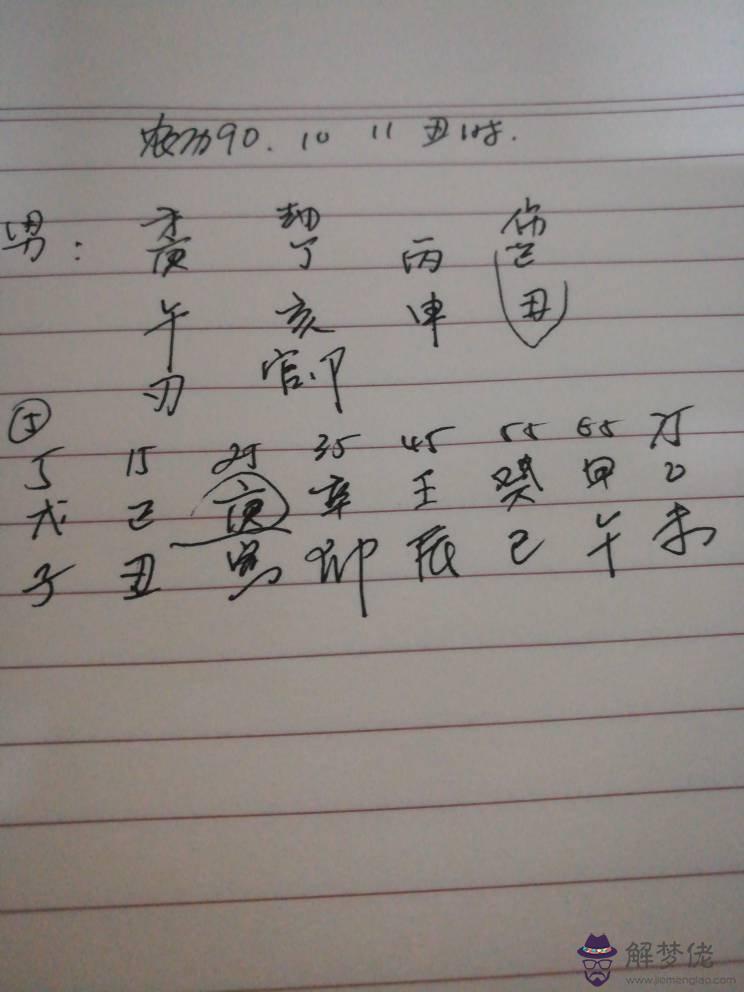 农历90.10 11 丑时.
才 劫 伤
男: 庚 丁 丙 己
午 亥 申 丑
刃 官.卩
5 15 25 35 45 55 65 75
戊 己 庚 辛 壬 癸 甲 乙
子 丑 寅 卯 辰 巳 午 未
解梦佬
www.jiemenglao.com